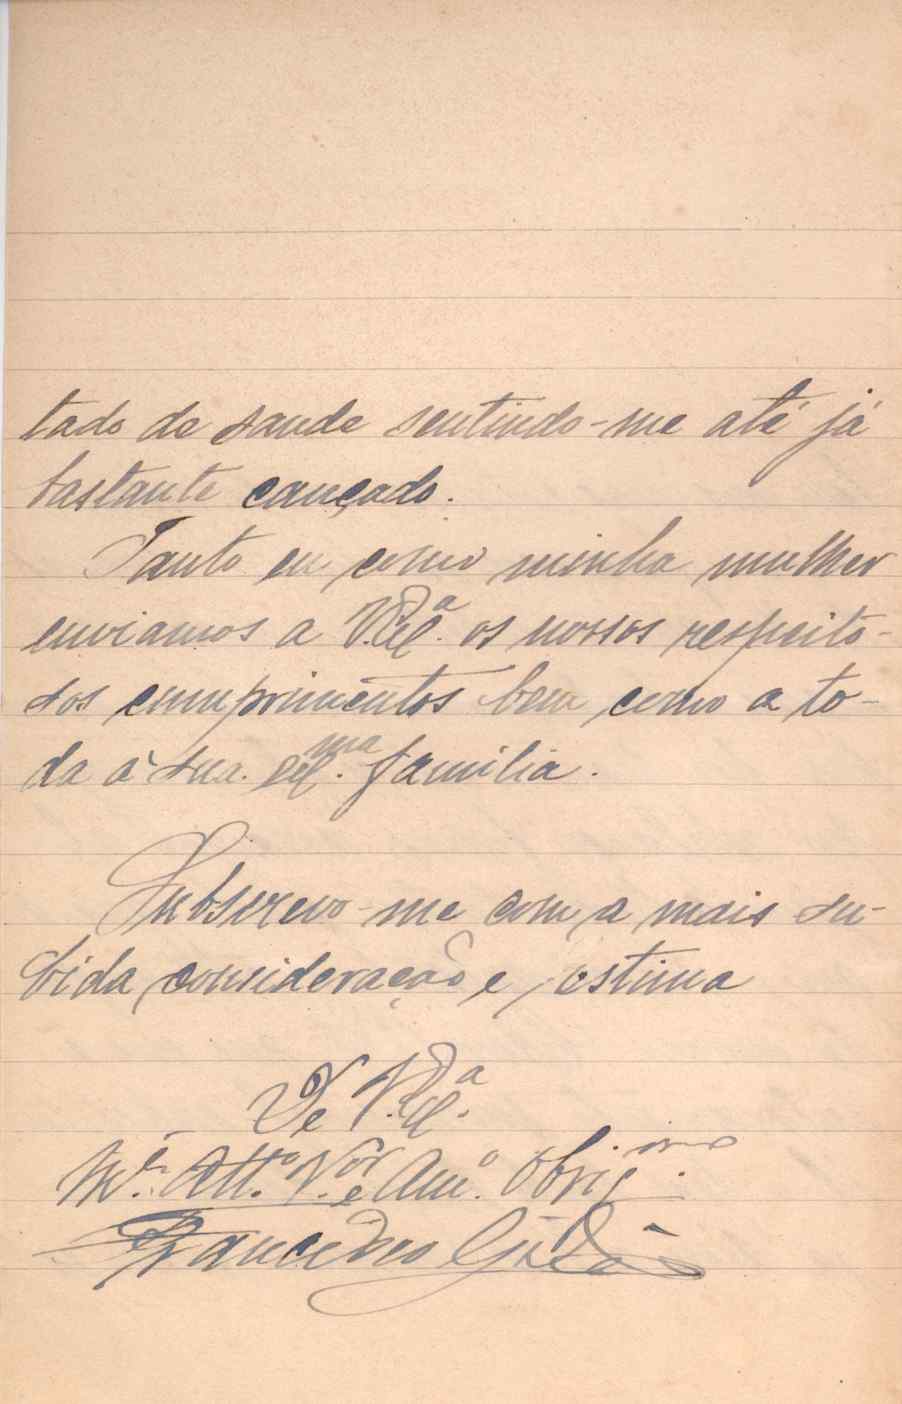 tado de saude sentindo-me até já
bastante cançado.
Tanto eu como minha mulher
enviamos a V. Exª. os nossos respeito-
sos cumprimentos bem como a to-
da a sua. Exma. familia.
Subscrevo-me com a mais su-
bida consideração e estima
De V. Exª.
Mto. Atto. Vor. e Amo. Obrigmo.
Francisco